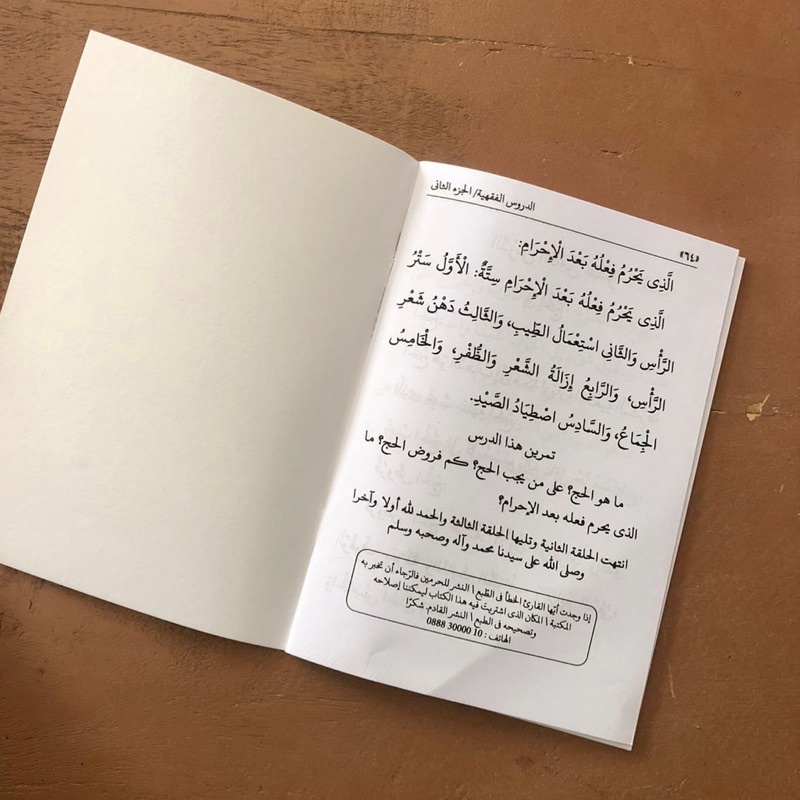 الدروس الفقهية/ الجزء الثانى
﴿٦٤﴾
الَّذِى يَحْرُمُ فِعْلُهُ بَعْدَ الْإِحْرَامِ:
الَّذِى يَحْرُمُ فِعْلُهُ بَعْدَ الْإِحْرَامِ سِتَّةٌ: الْأَوَّلُ سَتْرُ
الرَّأْسِ وَالثَّانِى اسْتِعْمَالُ الطِّيبِ، وَالثَّالِثُ دَهْنُ شَعْرِ
الرَّأْسِ، وَالرَّابِعُ إِزَالَةُ الشَّعْرِ وَالظُّفْرِ، وَالْخَامِسُ
الْجِمَاعُ، وَالسَّادِسُ اصْطِيَادُ الصَّيْدِ.
تمرين هذا الدرس
ما هو الحج؟ على من يجب الحج؟ كم فروض الحج؟ ما
الذى يحرم فعله بعد الإحرام؟
انتهت الحلقة الثانية وتليها الحلقة الثالثة والحمد لله أولا وآخرا
وصلى الله على سيدنا محمد وآله وصحبه وسلم
إذا وجدت أيّها القارئ الخطأ فى الطّبع \ النشر للحرمين فالرّجاء أن تخبر به
المكتبة \ المكان الذى اشتريت فيه هذا الكتاب ليمكننا إصلاحه
وتصحيحه فى الطبع \ النشر القادم. شكرًا
الهاتف : 10 30000 0888